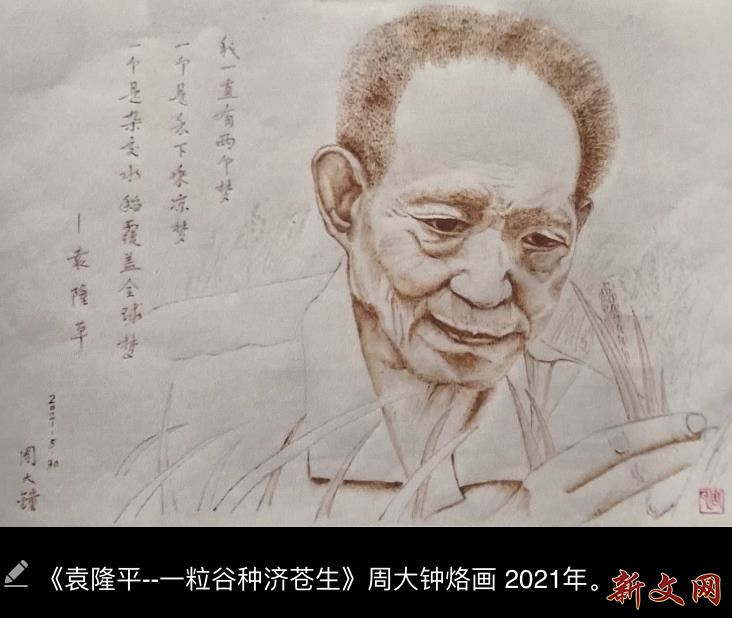 我一直有两个梦
一个是禾下乘凉梦
一个是杂交水稻覆盖全球梦
—袁隆平
2021.5.30
周大鐘
《袁隆平--一粒谷种济苍生》周大钟烙画 2021年。
新文网